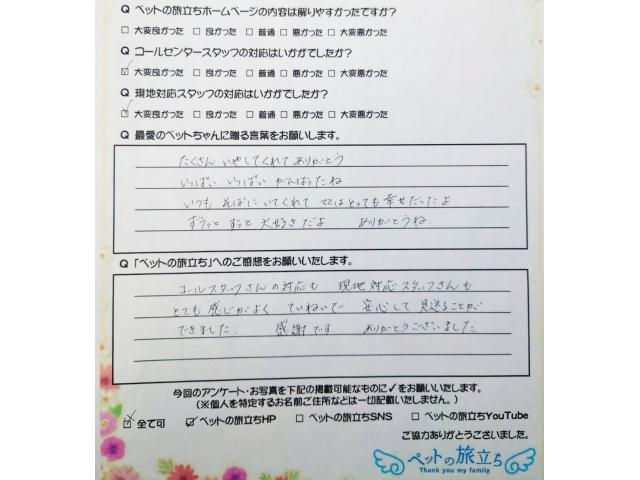 Q ペットの旅立ちホームページの内容は解りやすかったですか?
□ 大変良かった □ 良かった □ 普通 □ 悪かった □ 大変悪かった
Q コールセンタースタッフの対応はいかがでしたか?
☑ 大変良かった □ 良かった □ 普通 □ 悪かった □ 大変悪かった
Q 現地対応スタッフの対応はいかがでしたか?
☑ 大変良かった □ 良かった □ 普通 □ 悪かった □ 大変悪かった
Q 最愛のペットちゃんに贈る言葉をお願いします。
たくさん いやしてくれて ありがとう
いっぱい いっぱい がんばったね
いつも そばに いてくれて ママは とっても 幸せだったよ
ずうっと ずっと 大好きだよ ありがとうね
Q 「ペットの旅立ち」へのご感想をお願いいたします。
コールスタッフさんの対応も 現地対応スタッフさんも
とても 感じがよく ていねいで 安心して 見送ることが
できました. 感謝です ありがとうございました
今回のアンケート・お写真を下記の掲載可能なものに✓をお願いいたします。
(※個人を特定するお名前ご住所などは一切記載いたしません。)
☑ 全て可 ☑ ペットの旅立ちHP □ ペットの旅立ちSNS □ ペットの旅立ちYouTube
ご協力ありがとうございました。
ペットの旅立ち
Thank you my family